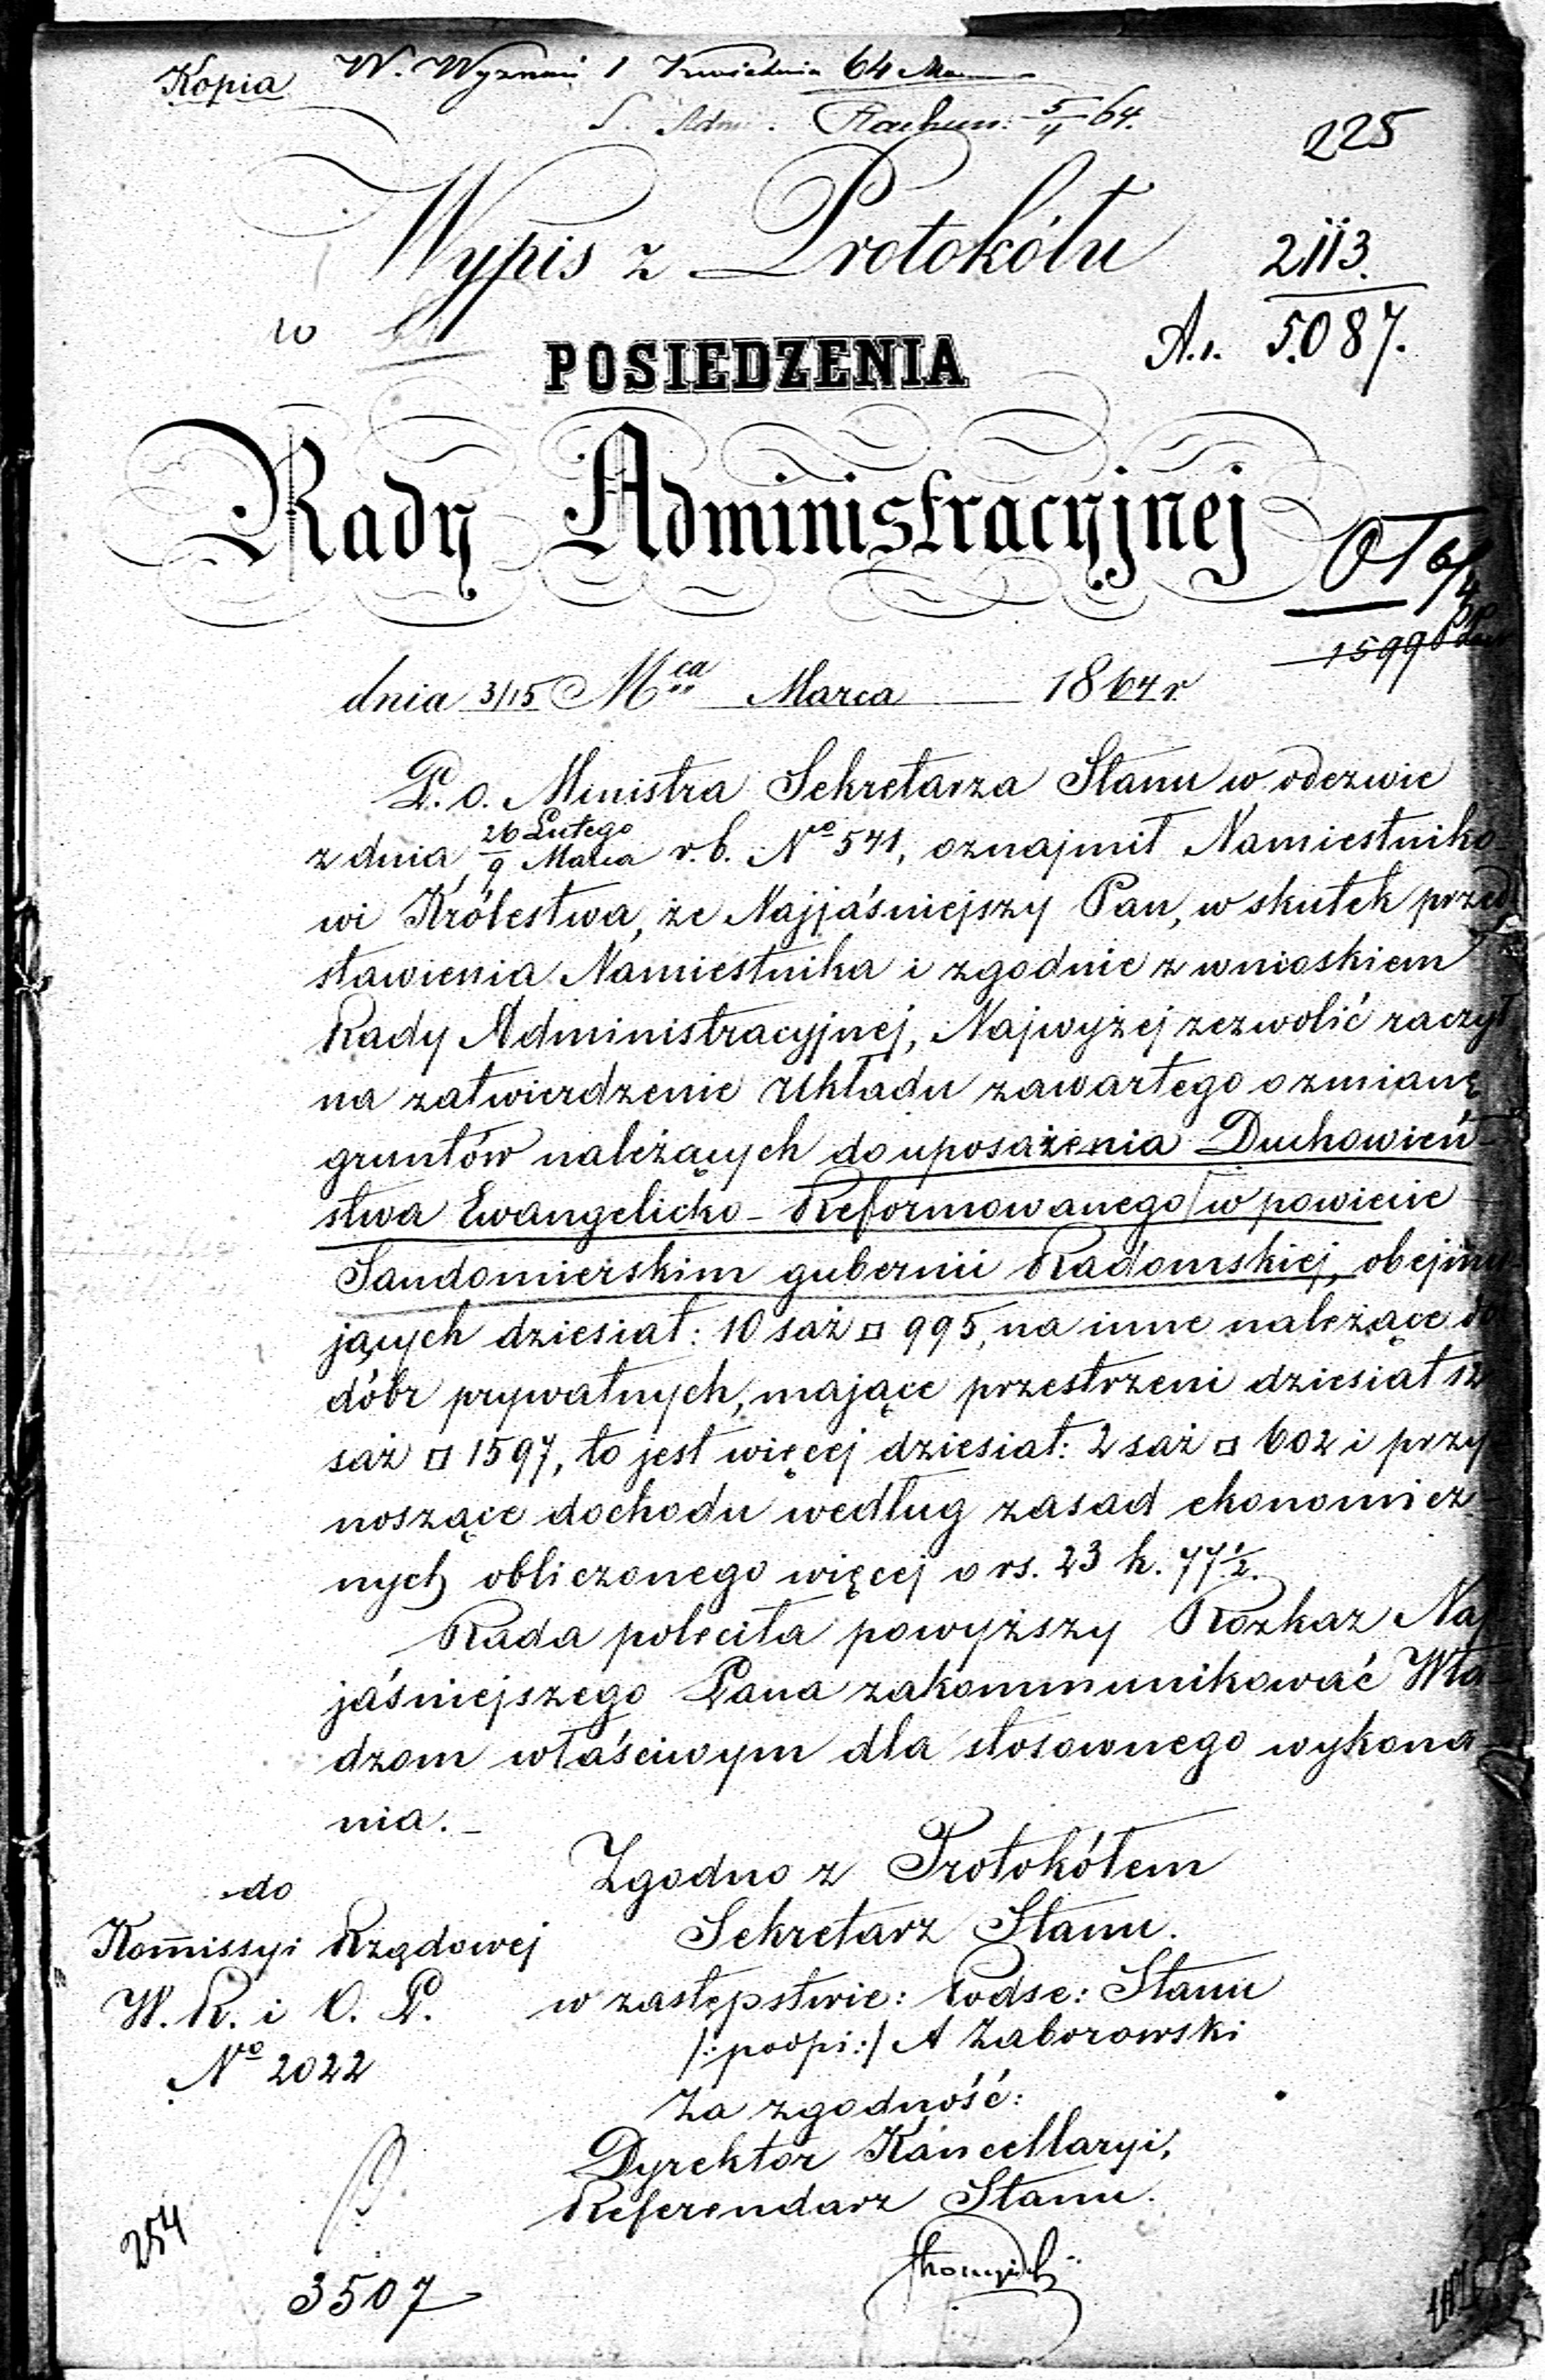 Kopia W. Wyznań 1 Kwietnia 64
S. Adm. Rachun: 5/4 64.
225
Wypis z Protokółu
2113.
w
POSIEDZENIA
A.1. 5087.
Rady Administracyjnej
1599
dnia 3/15 Mca Marca 1864 r
P. o. Ministra Sekretarza Stanu w odezwie
z dnia 26 Lutego / 9 Marca r. b. No 541, oznajmił Namiestniko-
wi Królestwa, że Najjaśniejszy Pan, w skutek przed
stawienia Namiestnika i zgodnie z wnioskiem
Rady Administracyjnej, Najwyżej zezwolić raczył
na zatwierdzenie Układu zawartego o zmianę
gruntów należących do uposażenia Duchowień-
stwa Ewangelicko-Reformowanego w powiecie
Sandomierskim gubernii Radomskiej, obejmu
jących dziesiat: 10 saż □ 995, na inne należące do
dóbr prywatnych, mające przestrzeni dziesiat 12
saż □ 1597, to jest więcej dziesiat: 2 saż □ 602 i przy
noszące dochodu według zasad ekonomicz-
nych obliczonego więcej o rs. 23 k. 77 1/2.
Rada poleciła powyższy Rozkaz Naj
jaśniejszego Pana zakommunikować Wła-
dzom właściwym dla stosownego wykona-
nia.-
Zgodno z Protokółem
do
Sekretarz Stanu.
Kom̄issyi Rządowej
w zastępstwie: Podse: Stanu
W. R. i O. P.
/:podpi:/ A Zaborowski
No 2022
Za zgodność:
Dyrektor Kancellaryi,
Referendarz Stanu.
254
3507